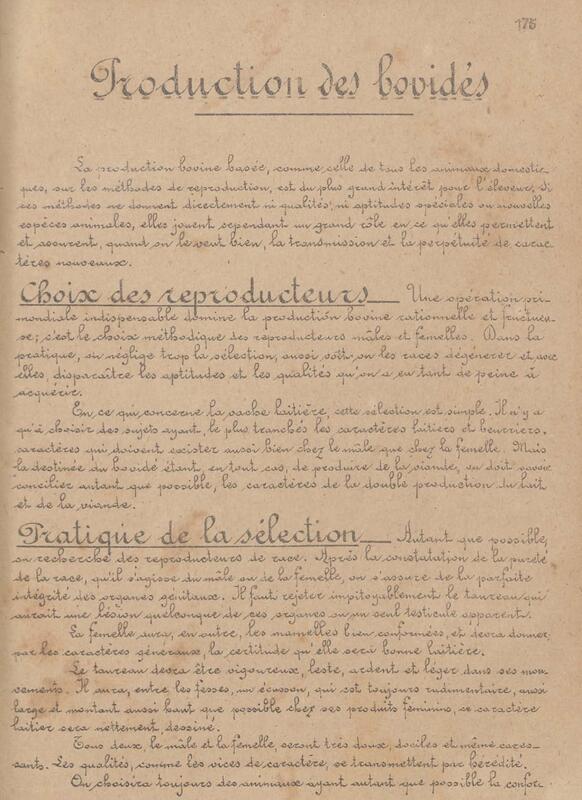 175
Production des bovidés
La production bovine basée, comme celle de tous les animaux domesti-
ques, sur les méthodes de reproduction, est du plus grand intérêt pour l'éleveur. Si
ces méthodes ne donnent directement ni qualités, ni aptitudes spéciales ou nouvelles
espèces animales, elles jouent cependant un grand rôle en ce qu'elles permettent
et assurent, quand on le veut bien, la transmission et la perpétuité de carac-
tères nouveaux.
Choix des reproducteurs _ Une opération pri-
mordiale indispensable domine la production bovine rationnelle et fructueu-
se; c'est le choix méthodique des reproducteurs mâles et femelles. Dans la
pratique, on néglige trop la sélection, aussi voit-on les races dégénérer et avec
elles, disparaître les aptitudes et les qualités qu'on a eu tant de peine à
acquérir.
En ce qui concerne la vache laitière, cette sélection est simple. Il n'y a
qu'à choisir des sujets ayant, le plus tranchés les caractères laitiers et beurriers.
caractères qui doivent exister aussi bien chez le mâle que chez la femelle. Mais
la destinée du bovidé étant, en tout cas, de produire de la viande, on doit savoir
concilier autant que possible, les caractères de la double production du lait
et de la viande.
Pratique de la sélection _ Autant que possible,
on recherche des reproducteurs de race. Après la constatation de la pureté
de la race, qu'il s'agisse du mâle ou de la femelle, on s'assure de la parfaite
intégrité des organes génitaux. Il faut rejeter impitoyablement le taureau qui
aurait une lésion quelconque de ces organes ou un seul testicule apparent.
La femelle aura, en outre, les mamelles bien conformées, et devra donner,
par les caractères généraux, la certitude qu'elle sera bonne laitière.
Le taureau devra être vigoureux, leste, ardent et léger dans ses mou-
vements. Il aura, entre les fesses, un écusson, qui est toujours rudimentaire, aussi
large et montant aussi haut que possible chez ses produits féminins, ce caractère
laitier sera nettement dessiné.
Tous deux, le mâle et la femelle, seront très doux, dociles et même cares-
sants. Les qualités, comme les vices de caractère, se transmettent par hérédité.
On choisira toujours des animaux ayant autant que possible la confor-